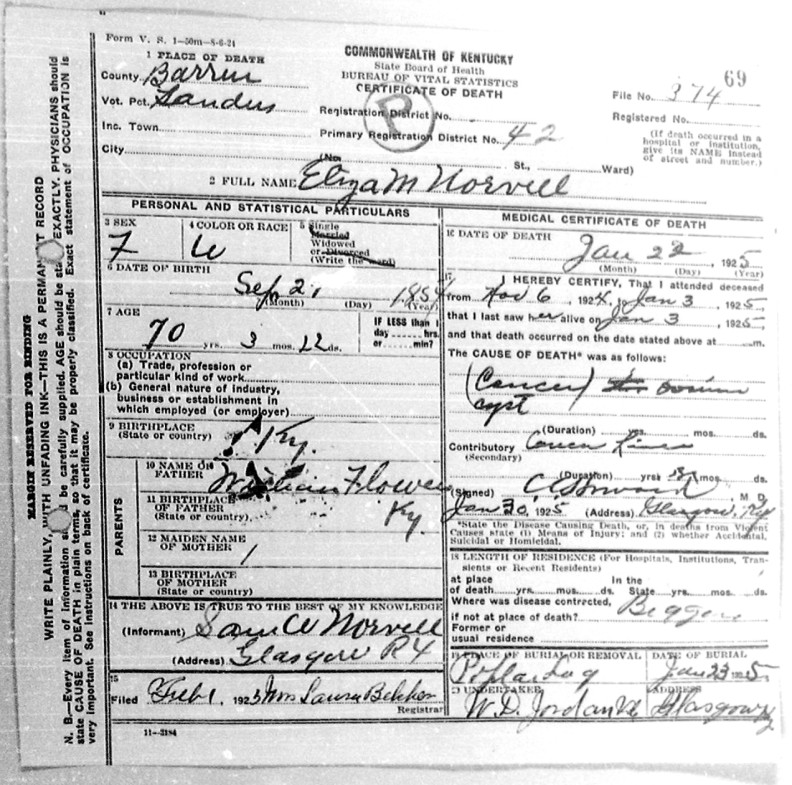 Form V. S. 1-50m-8-6-24
1 PLACE OF DEATH
County Barren
Vot. Pct. Sanders
Inc. Town
City
COMMONWEALTH OF KENTUCKY
State Board of Health
BUREAU OF VITAL STATISTICS
CERTIFICATE OF DEATH
Registration District No.
Primary Registration District No. 42
R
69
File No. 374
Registered No.
(If death occurred in a
hospital or institution,
give its NAME instead
of street and number.)
(No. St., Ward)
2 FULL NAME Eliza M Norvell
PERSONAL AND STATISTICAL PARTICULARS
3 SEX
F
4 COLOR OR RACE
W
5 Single
Married
Widowed
or Divorced
(Write the word)
6 DATE OF BIRTH
Sep 2, 1854
(Month) (Day) (Year)
7 AGE
70 yrs. 3 mos. 22 ds.
IF LESS than 1
day hrs.
or min?
8 OCCUPATION
(a) Trade, profession or
particular kind of work
(b) General nature of industry,
business or establishment in
which employed (or employer)
9 BIRTHPLACE
(State or country) Ky.
PARENTS
10 NAME OF
FATHER William Flowers
11 BIRTHPLACE
OF FATHER
(State or country) Ky.
12 MAIDEN NAME
OF MOTHER
13 BIRTHPLACE
OF MOTHER
(State or country)
14 THE ABOVE IS TRUE TO THE BEST OF MY KNOWLEDGE
(Informant) Sam W Norvell
(Address) Glasgow R4
15
Filed Feb 1, 1925 Mrs Laura
Registrar
11-3184
MEDICAL CERTIFICATE OF DEATH
16 DATE OF DEATH
Jan 22, 1925
(Month) (Day) (Year)
17 I HEREBY CERTIFY, That I attended deceased
from Nov 6, 1924, to Jan 3, 1925,
that I last saw her alive on Jan 3, 1925
and that death occurred on the date stated above at m.
The CAUSE OF DEATH* was as follows:
(Cancer)
cyst
(Duration) yrs. mos. ds.
Contributory
(Secondary)
(Duration) yrs. mos. ds.
(Signed) M D
Jan 30, 1925 (Address) Glasgow, Ky
*State the Disease Causing Death, or, in deaths from Violent
Causes state (1) Means of Injury; and (2) whether Accidental,
Suicidal or Homicidal.
18 LENGTH OF RESIDENCE (For Hospitals, Institutions, Tran-
sients or Recent Residents)
at place In the
of death yrs. mos. ds. State yrs. mos. ds.
Where was disease contracted,
if not at place of death?
Former or
usual residence
19 PLACE OF BURIAL OR REMOVAL
Poplar Log
DATE OF BURIAL
Jan 23 1925
20 UNDERTAKER
W. D. Jordan
ADDRESS
Glasgow Ky
MARGIN RESERVED FOR BINDING
WRITE PLAINLY, WITH UNFADING INK—THIS IS A PERMANENT RECORD
N. B.—Every item of information should be carefully supplied. AGE should be stated EXACTLY. PHYSICIANS should
state CAUSE OF DEATH in plain terms, so that it may be properly classified. Exact statement of OCCUPATION is
very important. See instructions on back of certificate.